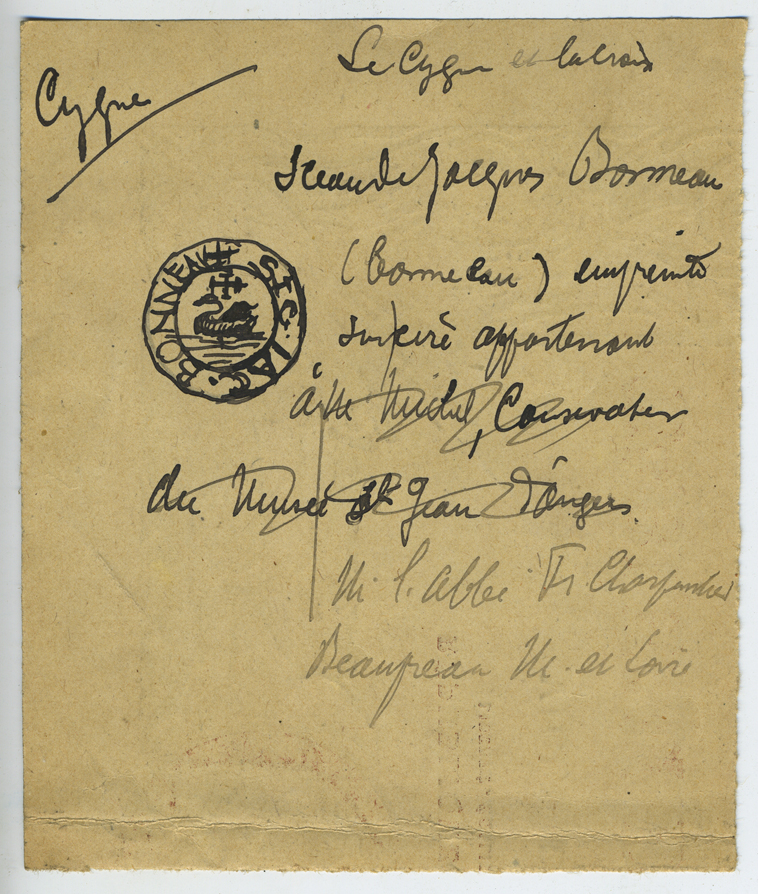 Le Cygne et la croix
Cygne
Sceau de Jacques Bonneau
(Bonneau) empreinte
sur cire appartenant
à M Michel, Conservateur
du Musée St Jean d'Angers
M. l'Abbé Fr Charpentier
Beaupreau M. et Loire
SIG · IAC · BONNEN